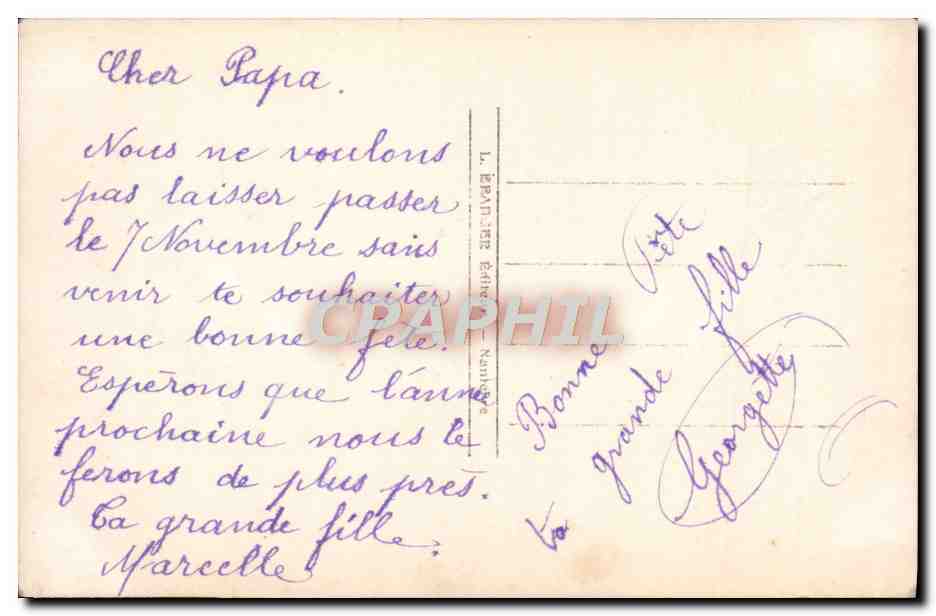 Cher Papa.
Nous ne voulons
pas laisser passer
le 7 Novembre sans
venir te souhaiter
une bonne fête.
Espérons que l'anné
prochaine nous le
ferons de plus près.
Ta grande fille
Marcelle
L. ÉRANGER Éditeur — Nanterre
Bonne Fête
ta grande fille
Georgette
CPAPHIL